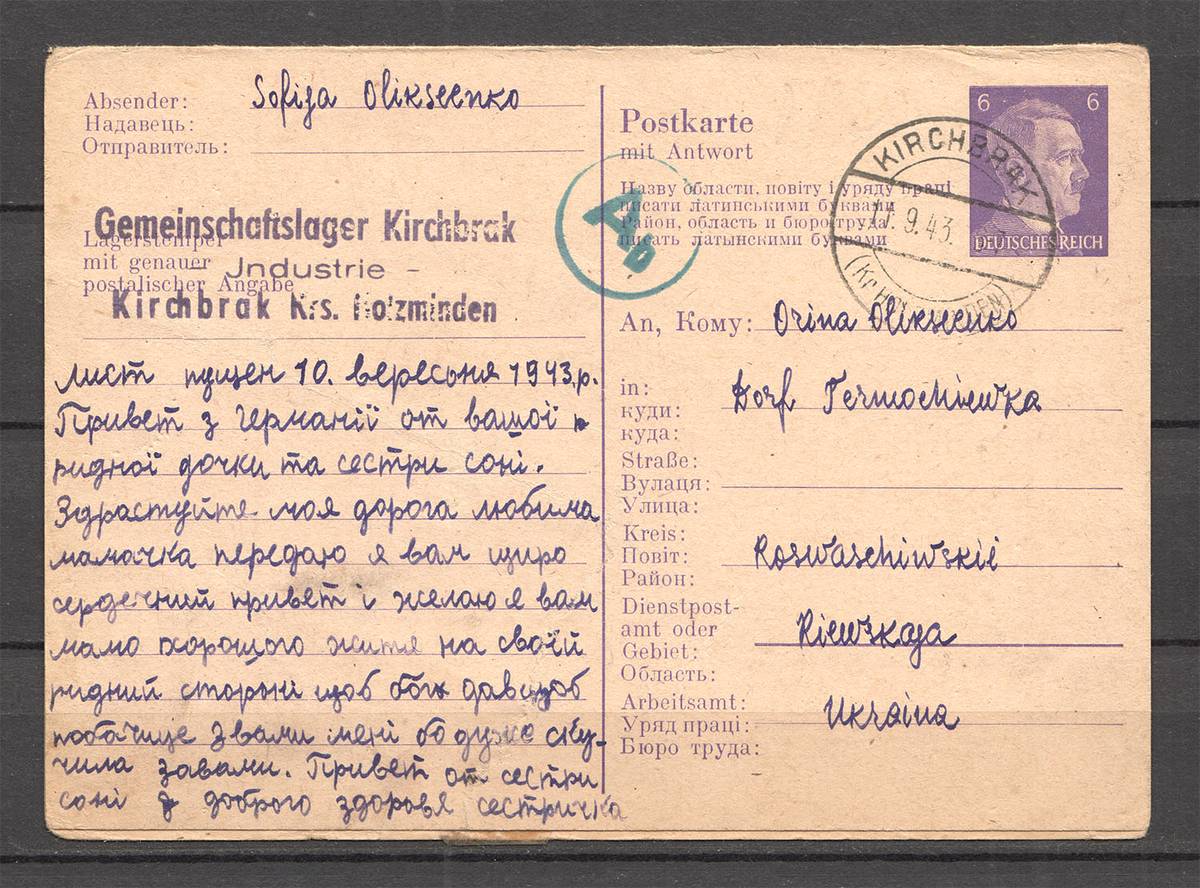 Absender: Sofija Olikseenko
Надавець:
Отправитель:
Gemeinschaftslager Kirchbrak
Lagerstempel
mit genauer
Jndustrie -
postalischer Angabe
Kirchbrak Krs. Holzminden
лист пущен 10. вересьня 1943.р.
Привет з германії от вашої
ридної дочки та сестри соні.
Здрастуйте моя дорога любима
мамачка передаю я вам щиро
сердечний привет і желаю я вам
мамо хорощого житя на своїй
ридний стороні щоб богь дав щоб
побачице з вами мені бо дуже ску-
чила завами. Привет от сестри
соні доброго здоровя сестричка
Postkarte
mit Antwort
Назву области, повіту і уряду праці
писати латинськими буквами
Район, область и бюро труда
писать латынскими буквами
Ab
6 6
DEUTSCHES REICH
KIRCHBRAK
9.43.
An, Кому: Orina Olikseenko
in: Dorf Termochiewka
куди:
куда:
Straße:
Вулаця:
Улица:
Kreis:
Повіт: Roswaschiwskii
Район:
Dienstpost-
amt oder Kiewskaja
Gebiet:
Область:
Arbeitsamt: Ukraina
Уряд праці:
Бюро труда: